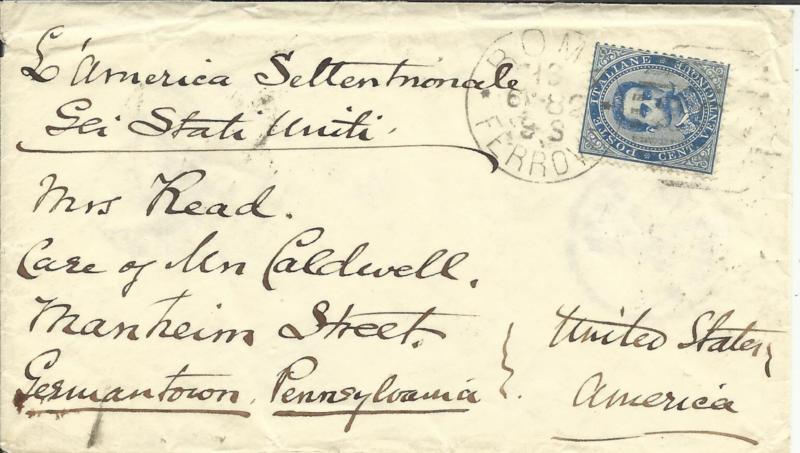 L'America Settentrionale
Gli Stati Uniti
Mrs Read.
Care of Mrs Caldwell.
Manheim Street.
Germantown, Pennsylvania
United States
America
ROM
FERROV
POSTE ITALIANE
CENT. VENTICINQUE